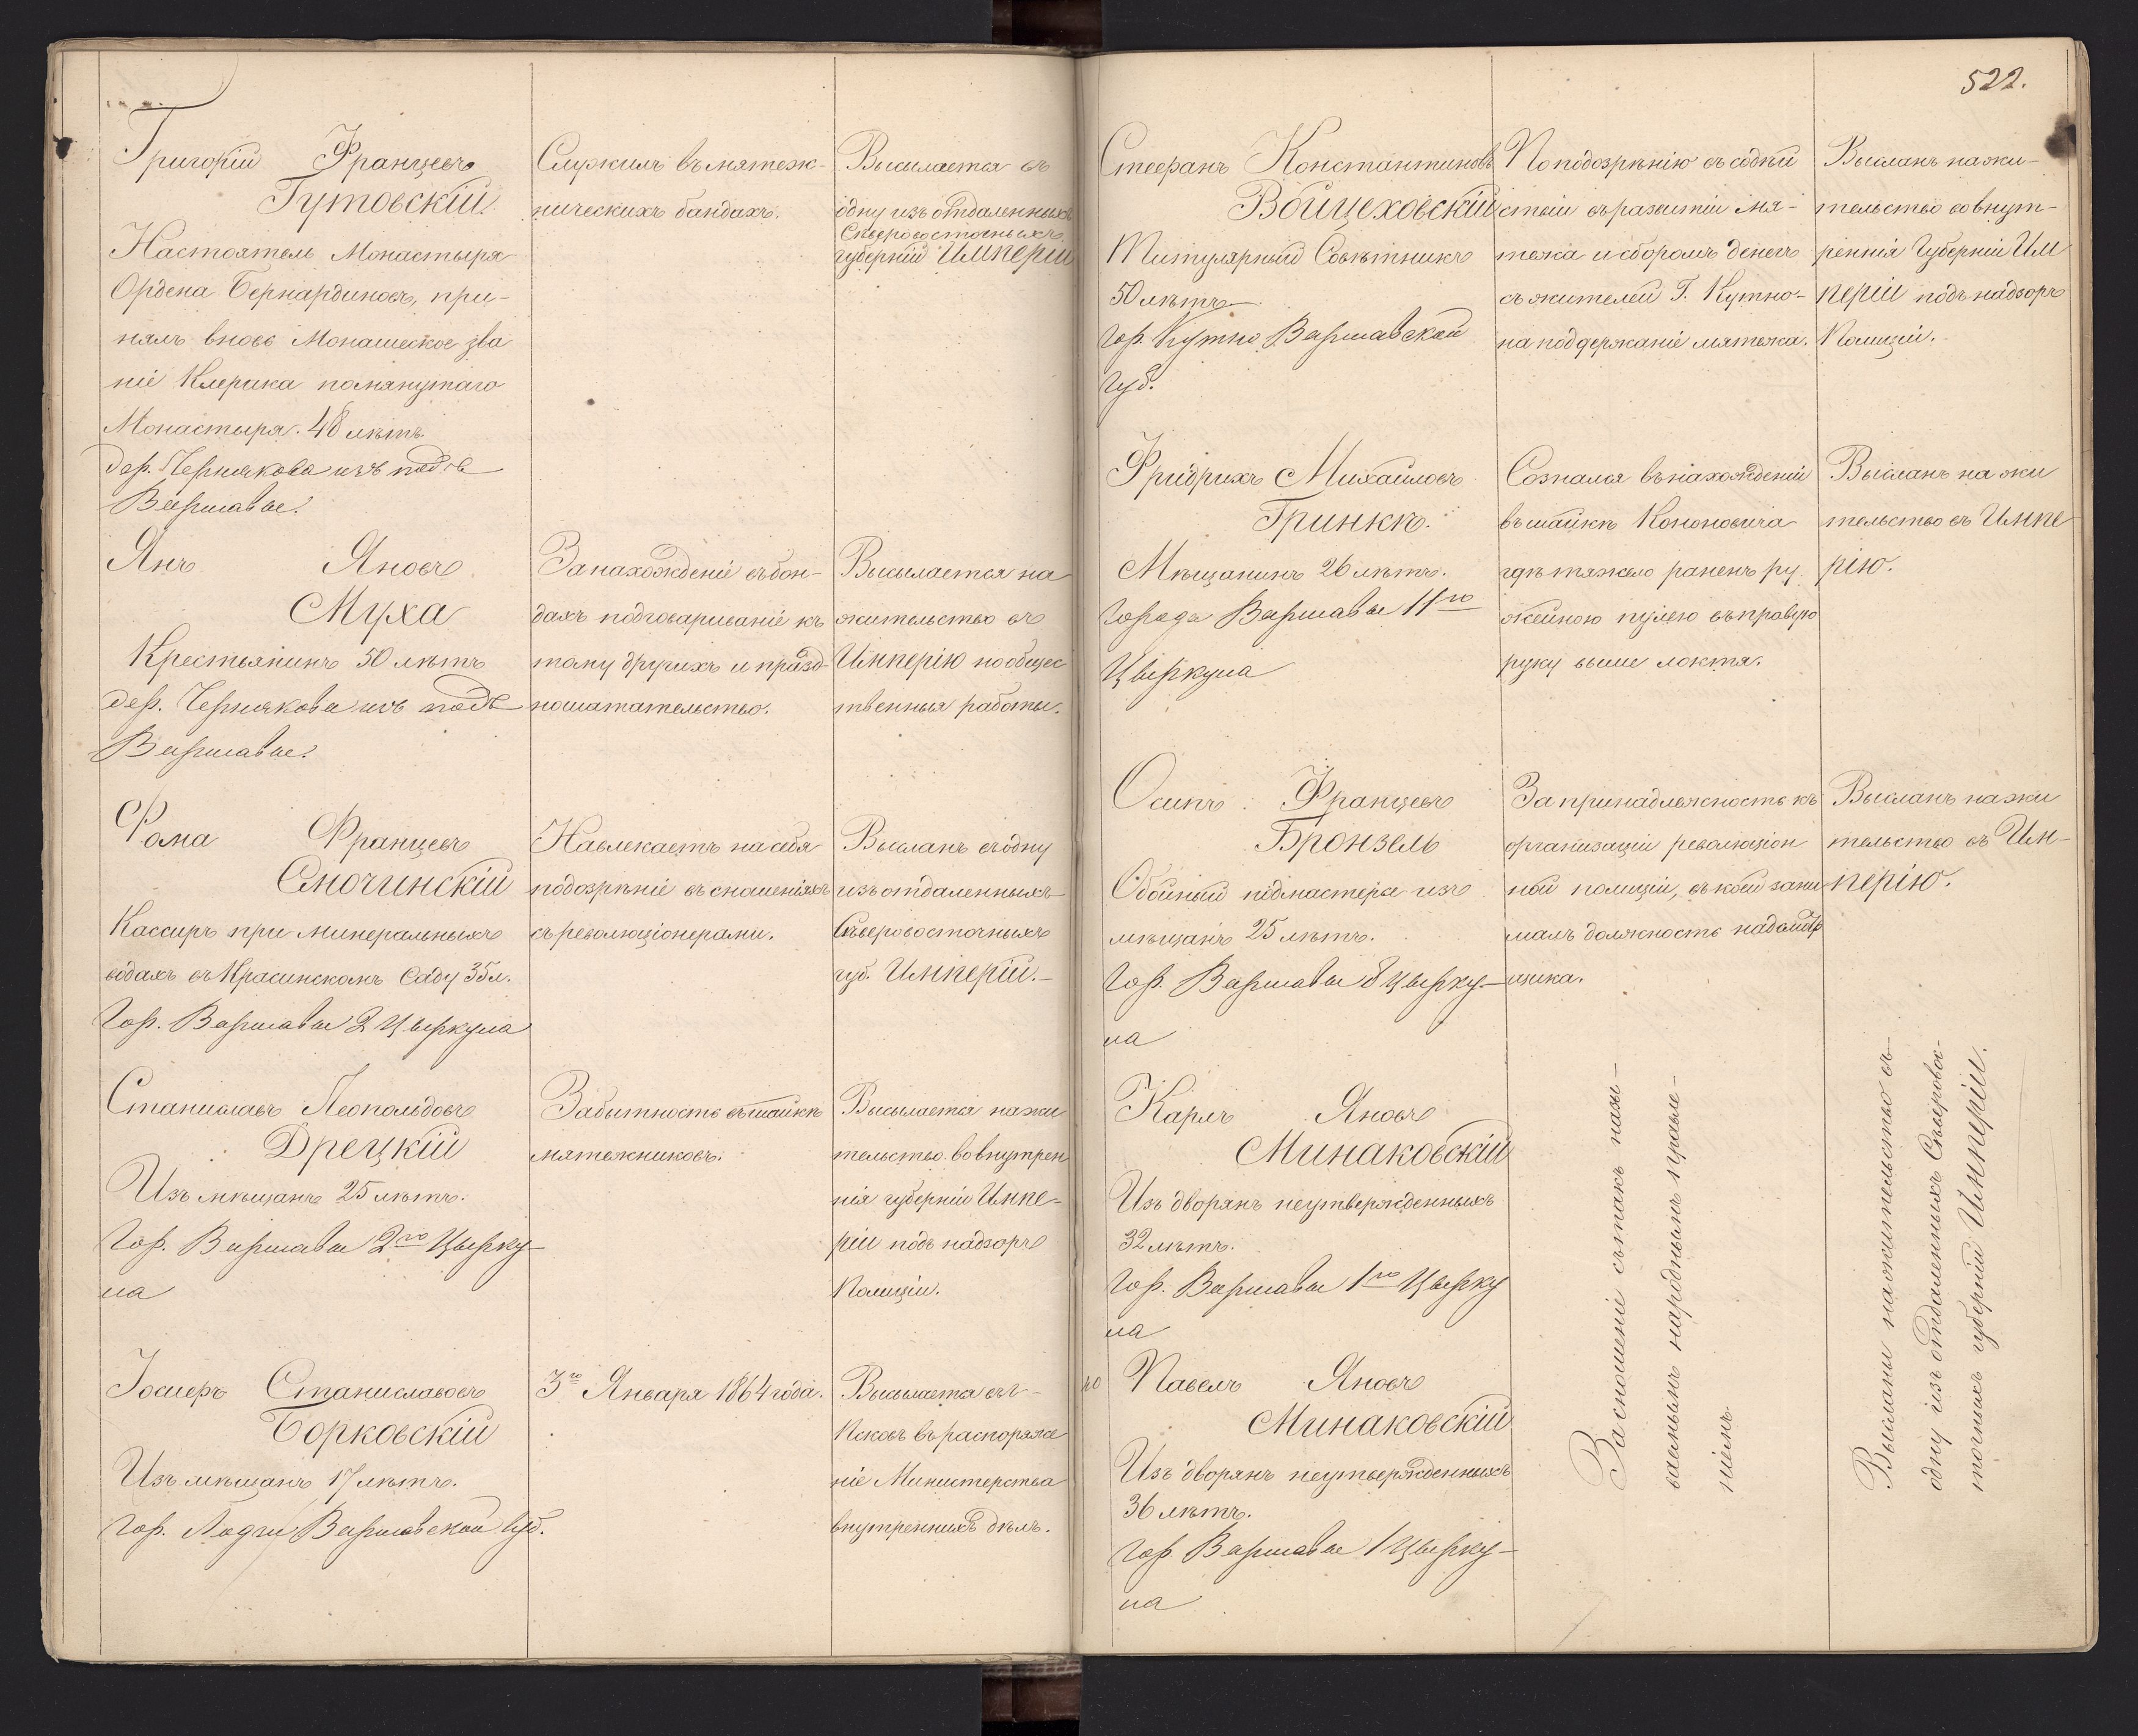 Григорій Францевъ
Гутовскій.
Настоятель Монастыря
Ордена Бернардиновъ, при-
нялъ вновь Монашеское зва
ніе Клерика помянутаго
Монастыря. 48 лѣтъ
дер. Чернякова изъ подъ
Варшавы.
Служилъ въ мятеж-
ническихъ бандахъ.
Высылается въ
одну изъ отдаленныхъ
Сѣверовосточныхъ
губерній Имперіи
Янъ Яновъ
Муха
Крестьянинъ 50 лѣтъ
дер. Чернякова изъ подъ
Варшавы.
За нахожденіе въ бан-
дахъ подговариваніе къ
тому другихъ и празд-
ношатательство.
Высылается на
жительство въ
Имперію на общес
твенныя работы.
Фома Францевъ
Смочинскій
Кассиръ при минеральныхъ
водахъ въ Красинскомъ Саду 35 л.
Гор. Варшавы 2 Цыркула
Навлекаетъ на себя
подозрѣніе въ сношеніяхъ
съ революціонерами.
Высланъ въ одну
изъ отдаленныхъ
Сѣверовосточныхъ
губ. Имперіи.-
Станиславъ Леопольдовъ
Дрецкій
Изъ мѣщанъ 25 лѣтъ.
Гор. Варшавы 2го Цырку-
ла
За бытность въ шайкѣ
мятежниковъ.
Высылается на жи
тельство во внутрен
нія губерніи Импе-
ріи подъ надзоръ
Полиціи.
Іосифъ Станиславовъ
Борковскій
Изъ мѣщанъ 17 лѣтъ.
Гор. Лодзи Варшавской Губ.
3го Января 1864 года.
Высылается въ-
Псковъ въ распоряже
ніе Министерства
внутреннихъ дѣлъ.
522.
Стефанъ Константиновъ
Войцеховскій
Титулярный Совѣтникъ
50 лѣтъ
Гор. Кутно Варшавской
Губ.
По подозрѣнію въ содѣй
ствіи въ развитіи мя-
тежа и сборомъ денегъ
съ жителей Г. Кутно-
на поддержаніе мятежа.
Высланъ на жи-
тельство во внут-
реннія Губерніи Им
періи подъ надзоръ
Полиціи.
Фридрихъ Михайловъ
Гринкъ.
Мѣщанинъ 26 лѣтъ.
Города Варшавы 11го
Цыркула
Сознался въ нахожденіи
въ шайкѣ Кононовича
гдѣ тяжело раненъ ру
жейною пулею въ правую
руку выше локтя.
Высланъ на жи
тельство въ Импе
рію.
Осипъ Францевъ
Бронзель
Обойный подмастерье изъ
мѣщанъ 25 лѣтъ.
Гор. Варшавы 8 Цырку-
ла
За принадлежность къ
организаціи революціон
ной полиціи, въ коей зани
малъ должность надсмотр
щика.
Высланъ на жи
тельство въ Им-
перію.
Карлъ Яновъ
Минаковскій
Изъ дворянъ неутвержденныхъ
32 лѣтъ.
Гор. Варшавы 1го Цырку
ла
Павелъ Яновъ
Минаковскій
Изъ дворянъ неутвержденныхъ
36 лѣтъ.
Гор. Варшавы 1 Цырку-
ла
За сношеніе съ такъ назы-
ваемымъ народнымъ правле-
ніемъ.
Высланы на жительство въ-
одну изъ отдаленныхъ Сѣверовос-
точныхъ губерній Имперіи.